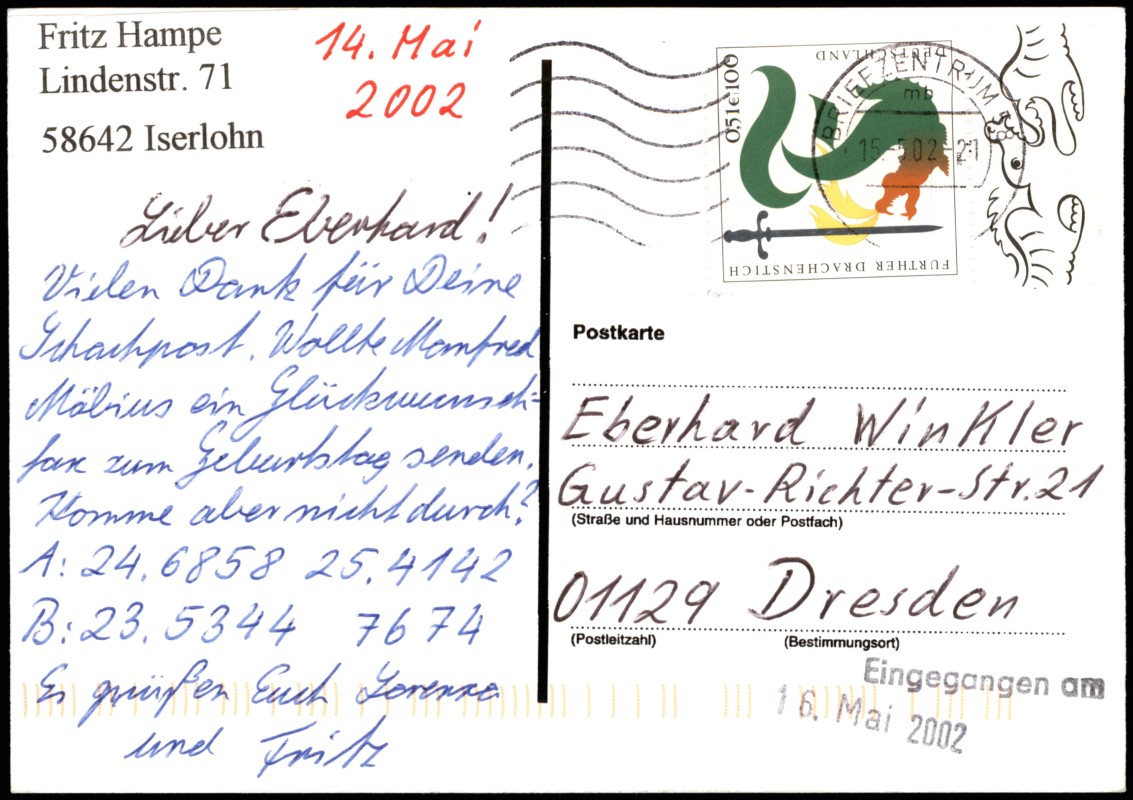 Fritz Hampe
Lindenstr. 71
58642 Iserlohn
14. Mai
2002
Lieber Eberhard!
Vielen Dank für Deine
Schachpost. Wollte Manfred
Möbius ein Glückwunsch-
fax zum Geburtstag senden.
Komme aber nicht durch?
A: 24.6858 25.4142
B: 23.5344 7674
Es grüßen Euch
und Fritz
DEUTSCHLAND
0,51€ 100
FURTHER DRACHENSTICH
BRIEFZENTRUM
mb
15.-5.02.-21
Postkarte
Eberhard Winkler
Gustav-Richter-Str. 21
(Straße und Hausnummer oder Postfach)
01129 Dresden
(Postleitzahl) (Bestimmungsort)
Eingegangen am
16. Mai 2002